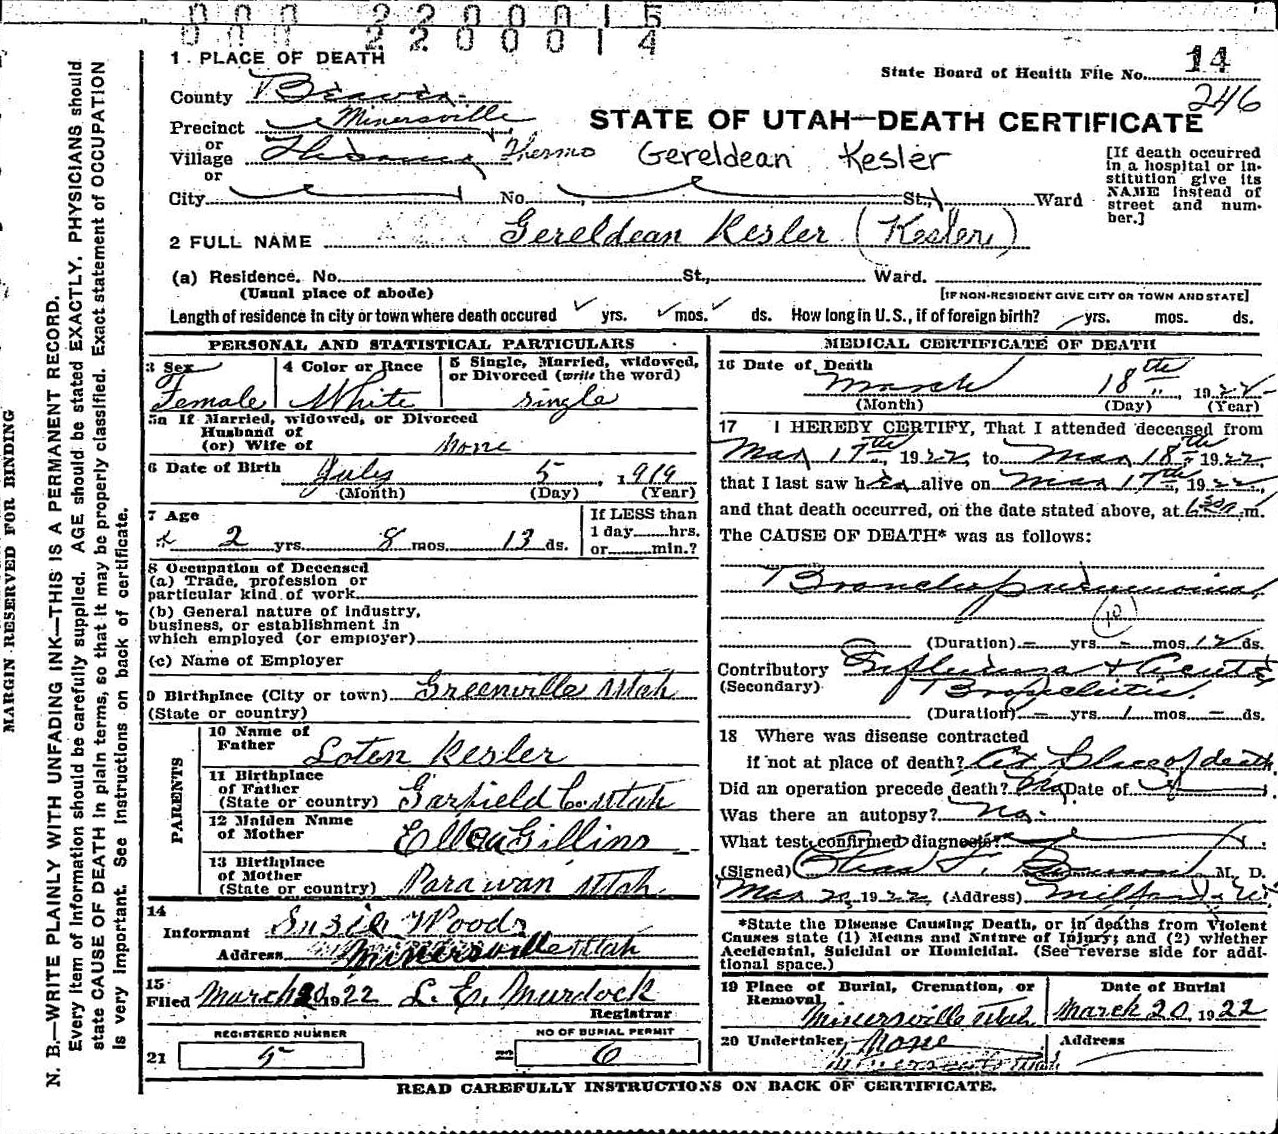 000 2200015
000 2200014
1 PLACE OF DEATH
State Board of Health File No. 14
246
County Beaver
Precinct Minersville
or
Village Thermo
or
STATE OF UTAH—DEATH CERTIFICATE
Gereldean Kesler
[If death occurred in a hospital or institution give its NAME instead of street and number.]
City No. St., Ward
2 FULL NAME Gereldean Kesler (Kesler)
(a) Residence. No. St., Ward.
(Usual place of abode) [IF NON-RESIDENT GIVE CITY OR TOWN AND STATE]
Length of residence in city or town where death occured yrs. mos. ds. How long in U.S., if of foreign birth? yrs. mos. ds.
PERSONAL AND STATISTICAL PARTICULARS
3 Sex Female
4 Color or Race White
5 Single, Married, widowed, or Divorced (write the word) single
5a If Married, widowed, or Divorced
Husband of
(or) Wife of None
6 Date of Birth July 5, 1919
(Month) (Day) (Year)
7 Age
2 yrs. 8 mos. 13 ds.
If LESS than
1 day hrs.
or min.?
8 Occupation of Deceased
(a) Trade, profession or
particular kind of work
(b) General nature of Industry,
business, or establishment in
which employed (or employer)
(c) Name of Employer
9 Birthplace (City or town) Greenville Utah
(State or country)
PARENTS
10 Name of
Father Loten Kesler
11 Birthplace
of Father
(State or country) Garfield Co. Utah
12 Maiden Name
of Mother Ella Gillins
13 Birthplace
of Mother
(State or country) Parawan Utah
14
Informant Susie Woods
Address Minersville Utah
15
Filed March 20 1922 L. E. Murdock
Registrar
REGISTERED NUMBER
21 5
NO OF BURIAL PERMIT
22 6
MEDICAL CERTIFICATE OF DEATH
16 Date of Death
March 18th, 1922
(Month) (Day) (Year)
17 I HEREBY CERTIFY, That I attended deceased from
Mar 17th, 1922, to Mar 18th 1922,
that I last saw her alive on Mar 17th, 1922,
and that death occurred, on the date stated above, at m.
The CAUSE OF DEATH* was as follows:
Bronchopneumonia
(10)
(Duration) – yrs. – mos. 12 ds.
Contributory Influenza & Acute
(Secondary)
(Duration) – yrs. 1 mos. – ds.
18 Where was disease contracted
if not at place of death? At Place of death
Did an operation precede death? No Date of
Was there an autopsy? No.
What test confirmed diagnosis?
(Signed) M. D.
Mar 20, 1922 (Address) Milford
*State the Disease Causing Death, or in deaths from Violent
Causes state (1) Means and Nature of Injury; and (2) whether
Accidental, Suicidal or Homicidal. (See reverse side for additional space.)
19 Place of Burial, Cremation, or
Removal
Minersville Utah
Date of Burial
March 20, 1922
20 Undertaker, None
Address
READ CAREFULLY INSTRUCTIONS ON BACK OF CERTIFICATE.
MARGIN RESERVED FOR BINDING
N. B.—WRITE PLAINLY WITH UNFADING INK—THIS IS A PERMANENT RECORD.
Every item of information should be carefully supplied. AGE should be stated EXACTLY. PHYSICIANS should
state CAUSE OF DEATH in plain terms, so that it may be properly classified. Exact statement of OCCUPATION
is very important. See instructions on back of certificate.